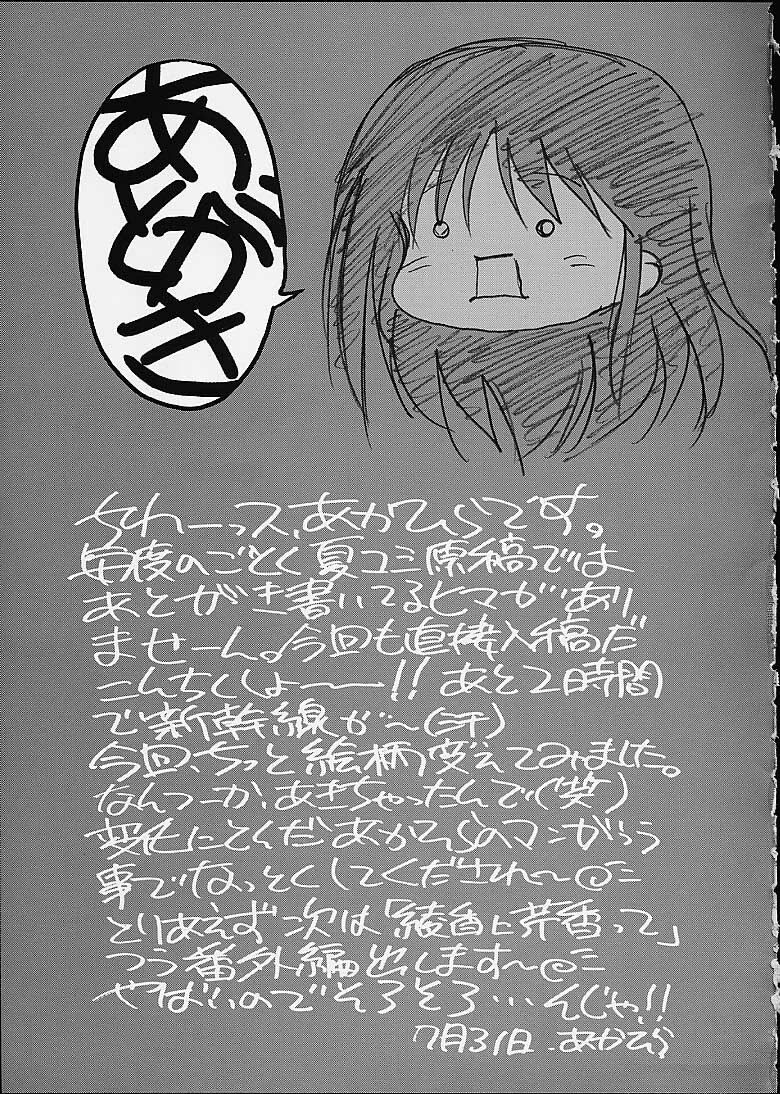 あとがき
ちわーっス、あかひらです。
毎度のごとく夏コミ原稿では
あとがき書いてるヒマがあり
ませーん。今回も直接入稿だ
こんちくしょーーー!! あと2時間
で新幹線が〜(汗)
今回、ちっと絵柄変えてみました。
なんつーか、あきちゃったんで(笑)
変化にとんだあかひらのマンガっつう
事でなっとくしてくだされ〜
とりあえず次は「綾香と芹香って」
つう番外編出します〜
やばいのでそろそろ…んじゃ!!
7月31日. あかひら